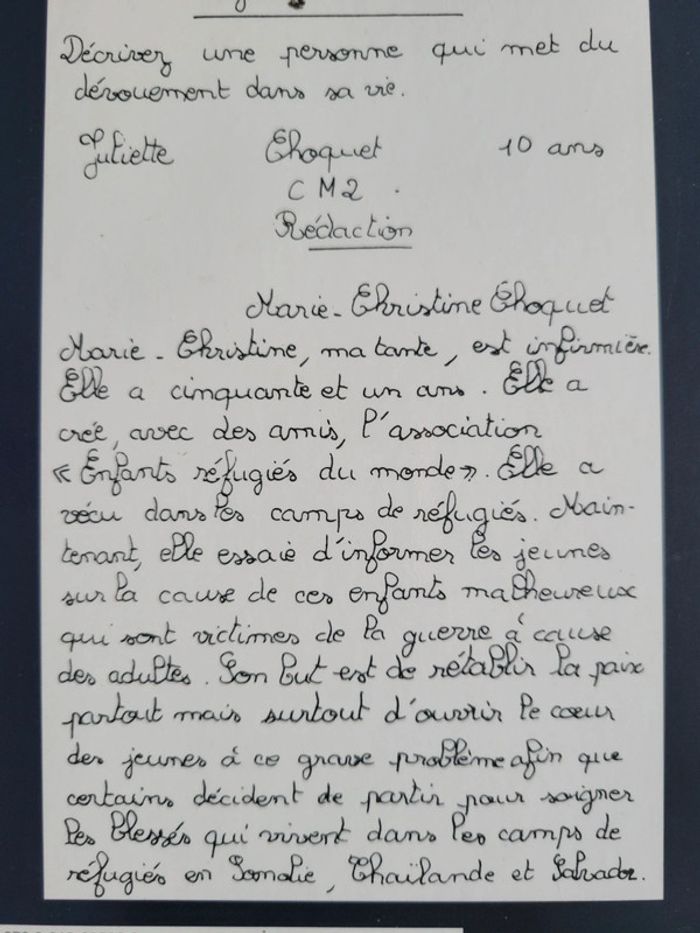 Décrivez une personne qui met du
dévouement dans sa vie.
Juliette Choquet 10 ans
CM2.
Rédaction
Marie-Christine Choquet
Marie-Christine, ma tante, est infirmière.
Elle a cinquante et un ans. Elle a
créé, avec des amis, l'association
« Enfants réfugiés du monde ». Elle a
vécu dans les camps de réfugiés. Main-
tenant, elle essaie d'informer les jeunes
sur la cause de ces enfants malheureux
qui sont victimes de la guerre à cause
des adultes. Son but est de rétablir la paix
partout mais surtout d'ouvrir le coeur
des jeunes à ce grave problème afin que
certains décident de partir pour soigner
les blessés qui vivent dans les camps de
réfugiés en Somalie, Thaïlande et Salvador.